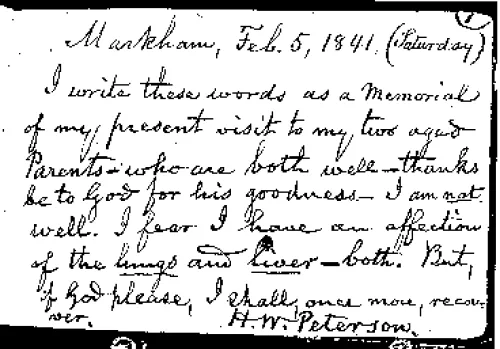 1
Markham, Feb. 5, 1841. (Saturday)
I write these words as a Memorial
of my present visit to my two aged
Parents—who are both well—thanks
be to God for his goodness—I am not
well. I fear I have an affection
of the lungs and liver—both. But,
if God please, I shall, once more, recov-
ver. H. W. Peterson.